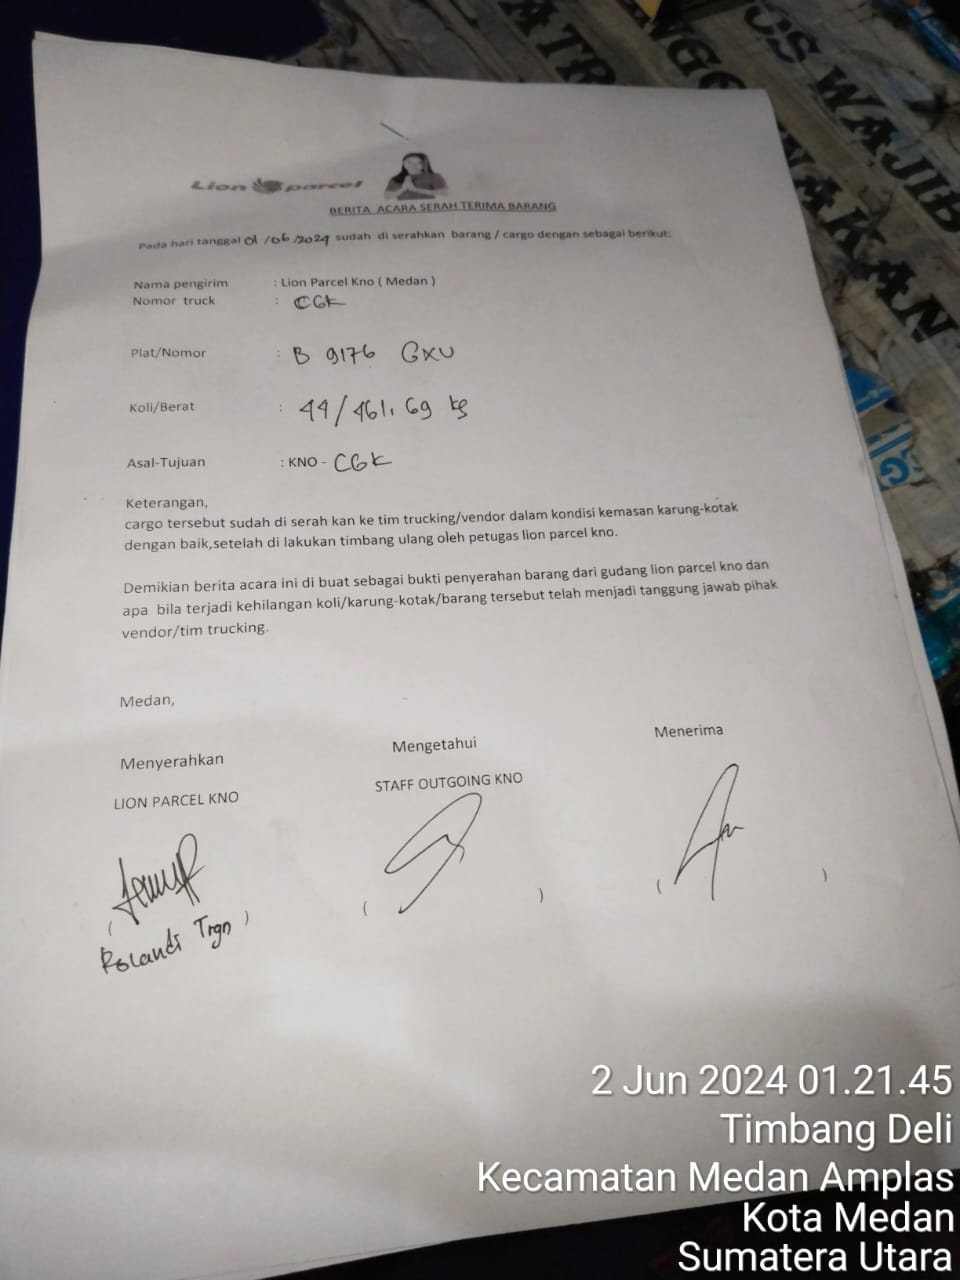 Lion parcel
BERITA ACARA SERAH TERIMA BARANG
Pada hari tanggal 01/06/2024 sudah di serahkan barang / cargo dengan sebagai berikut:
Nama pengirim : Lion Parcel Kno ( Medan )
Nomor truck : CGK
Plat/Nomor : B 9176 GXU
Koli/Berat : 44/461,69 kg
Asal-Tujuan : KNO - CGK
Keterangan,
cargo tersebut sudah di serah kan ke tim trucking/vendor dalam kondisi kemasan karung-kotak
dengan baik,setelah di lakukan timbang ulang oleh petugas lion parcel kno.
Demikian berita acara ini di buat sebagai bukti penyerahan barang dari gudang lion parcel kno dan
apa bila terjadi kehilangan koli/karung-kotak/barang tersebut telah menjadi tanggung jawab pihak
vendor/tim trucking.
Medan,
Menyerahkan Mengetahui Menerima
LION PARCEL KNO STAFF OUTGOING KNO
( Rolandi Trgn ) ( ) ( )
OS WAJIB
2 Jun 2024 01.21.45
Timbang Deli
Kecamatan Medan Amplas
Kota Medan
Sumatera Utara